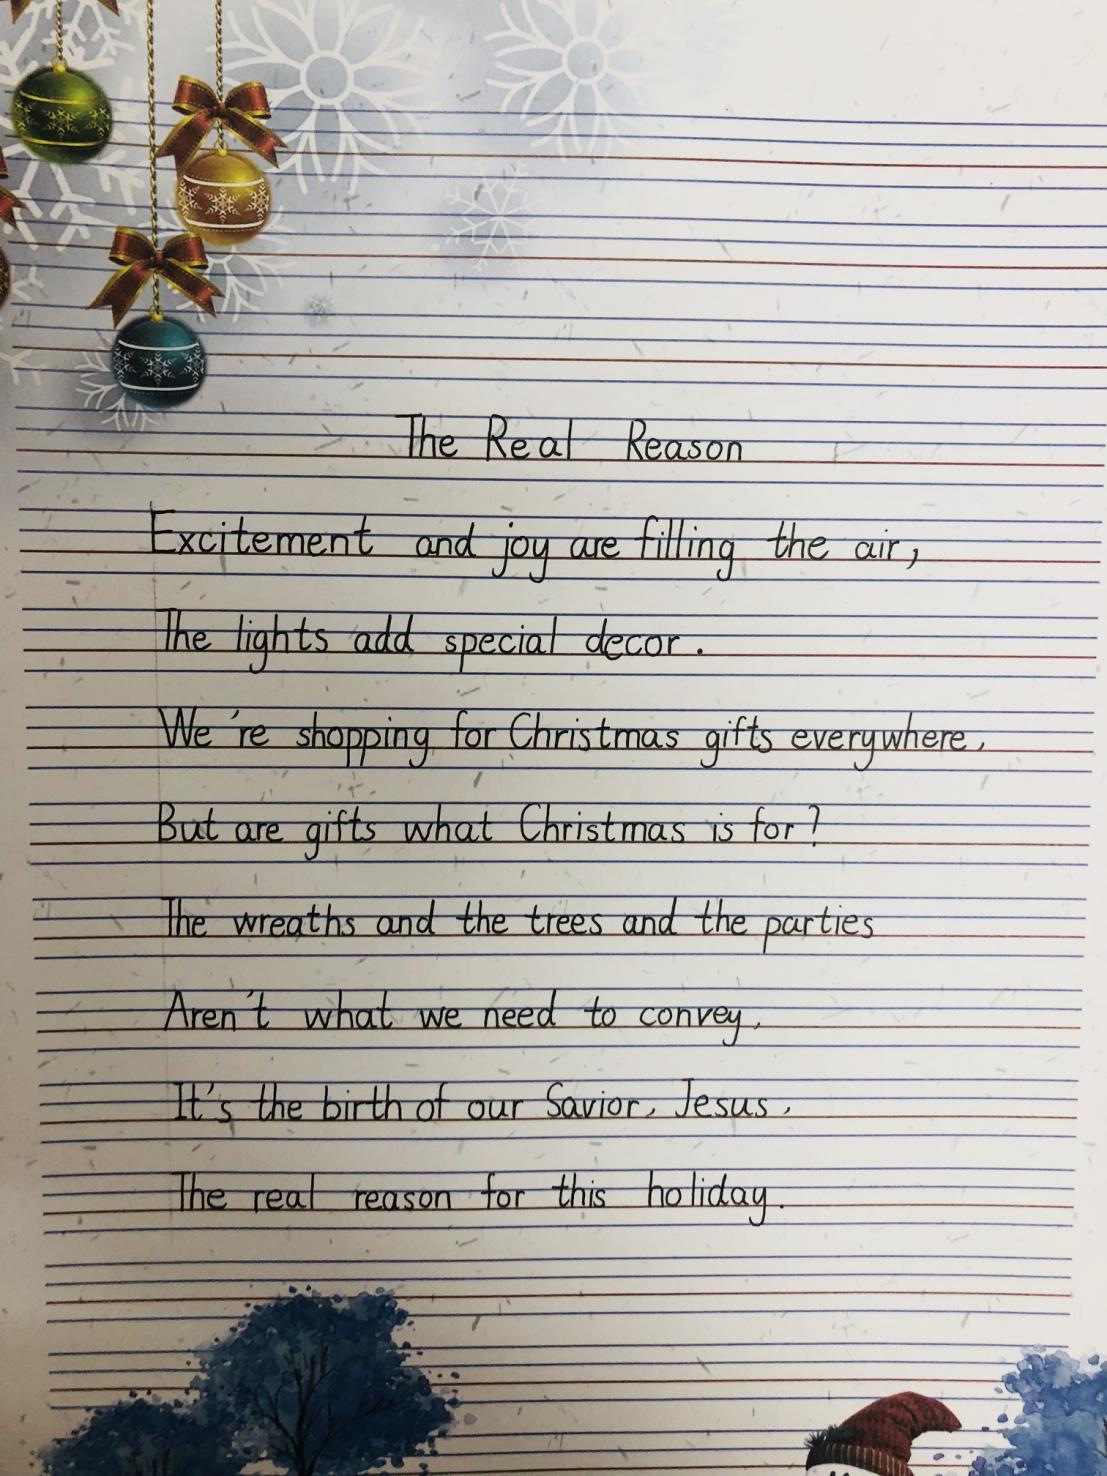 The Real Reason
Excitement and joy are filling the air,
The lights add special decor.
We're shopping for Christmas gifts everywhere,
But are gifts what Christmas is for?
The wreaths and the trees and the parties
Aren't what we need to convey,
It's the birth of our Savior, Jesus,
The real reason for this holiday.